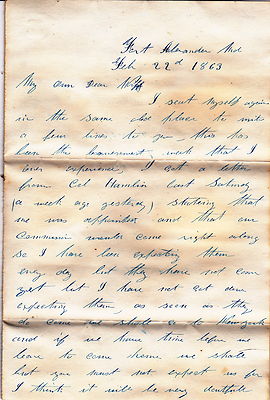 Fort Alexander Md
Feb 22d 1863
My own Dear Wife
I seat myself again
in the same old place to write
a few lines to you this has
been the week that I
ever experienced, I got a letter
from Col Hamlin Last Saturday
(a week ago yesterday) stateing that
we was appointed and that our
would come right along
so I have been expecting them
every day but they have not come
yet but I have not set down
expecting them, as soon as they
do come we shall go to New York
and if we have time before we
leave to come home we shall
but you must not expect us for
I think it will be very doubtfull